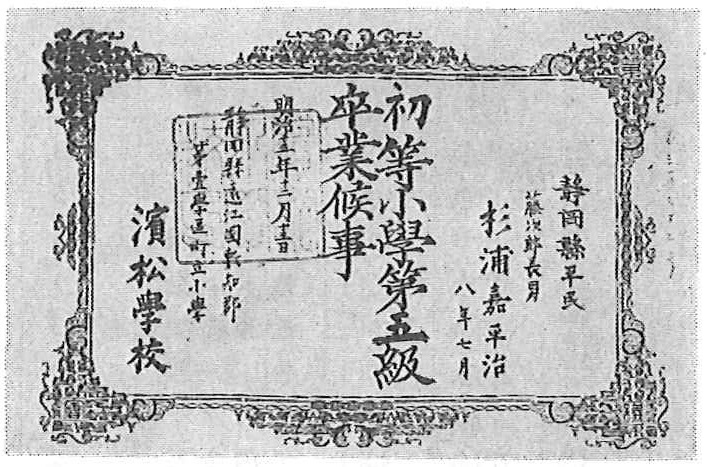 静岡縣平民
藤次郎長男
杉浦嘉平治
八年七月
初等小學第五級
卒業候事
明治十五年十二月
静岡縣遠江國敷知郡
第壹學區町立小學
濱松學校